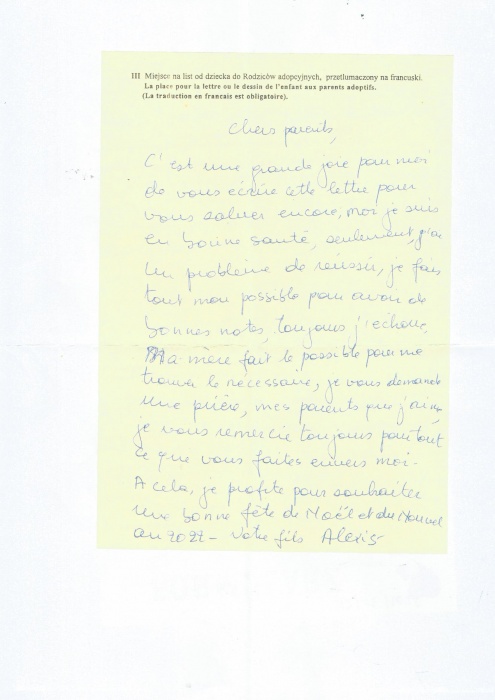 III Miejsce na list od dziecka do Rodziców adopcyjnych, przetłumaczony na francuski.
La place pour la lettre ou le dessin de l'enfant aux parents adeptifs.
(La traduction en francais est obligatoire).
Chers parents,
C'est une grande joie pour moi
de vous écrire cette lettre pour
vous saluer encore, moi je suis
en bonne santé, seulement, j'ai
un problème de réussir, je fais
tout mon possible pour avoir de
bonnes notes, toujours j'echoue,
Ma mère fait le possible pour me
trouver le necessaire, je vous demande
une prière, mes parents que j'aime
je vous remercie toujours pour tout
ce que vous faites envers moi.
A cela, je profite pour souhaiter
une bonne fête de Noël et du Nouvel
an 2022 - Votre fils Alexis